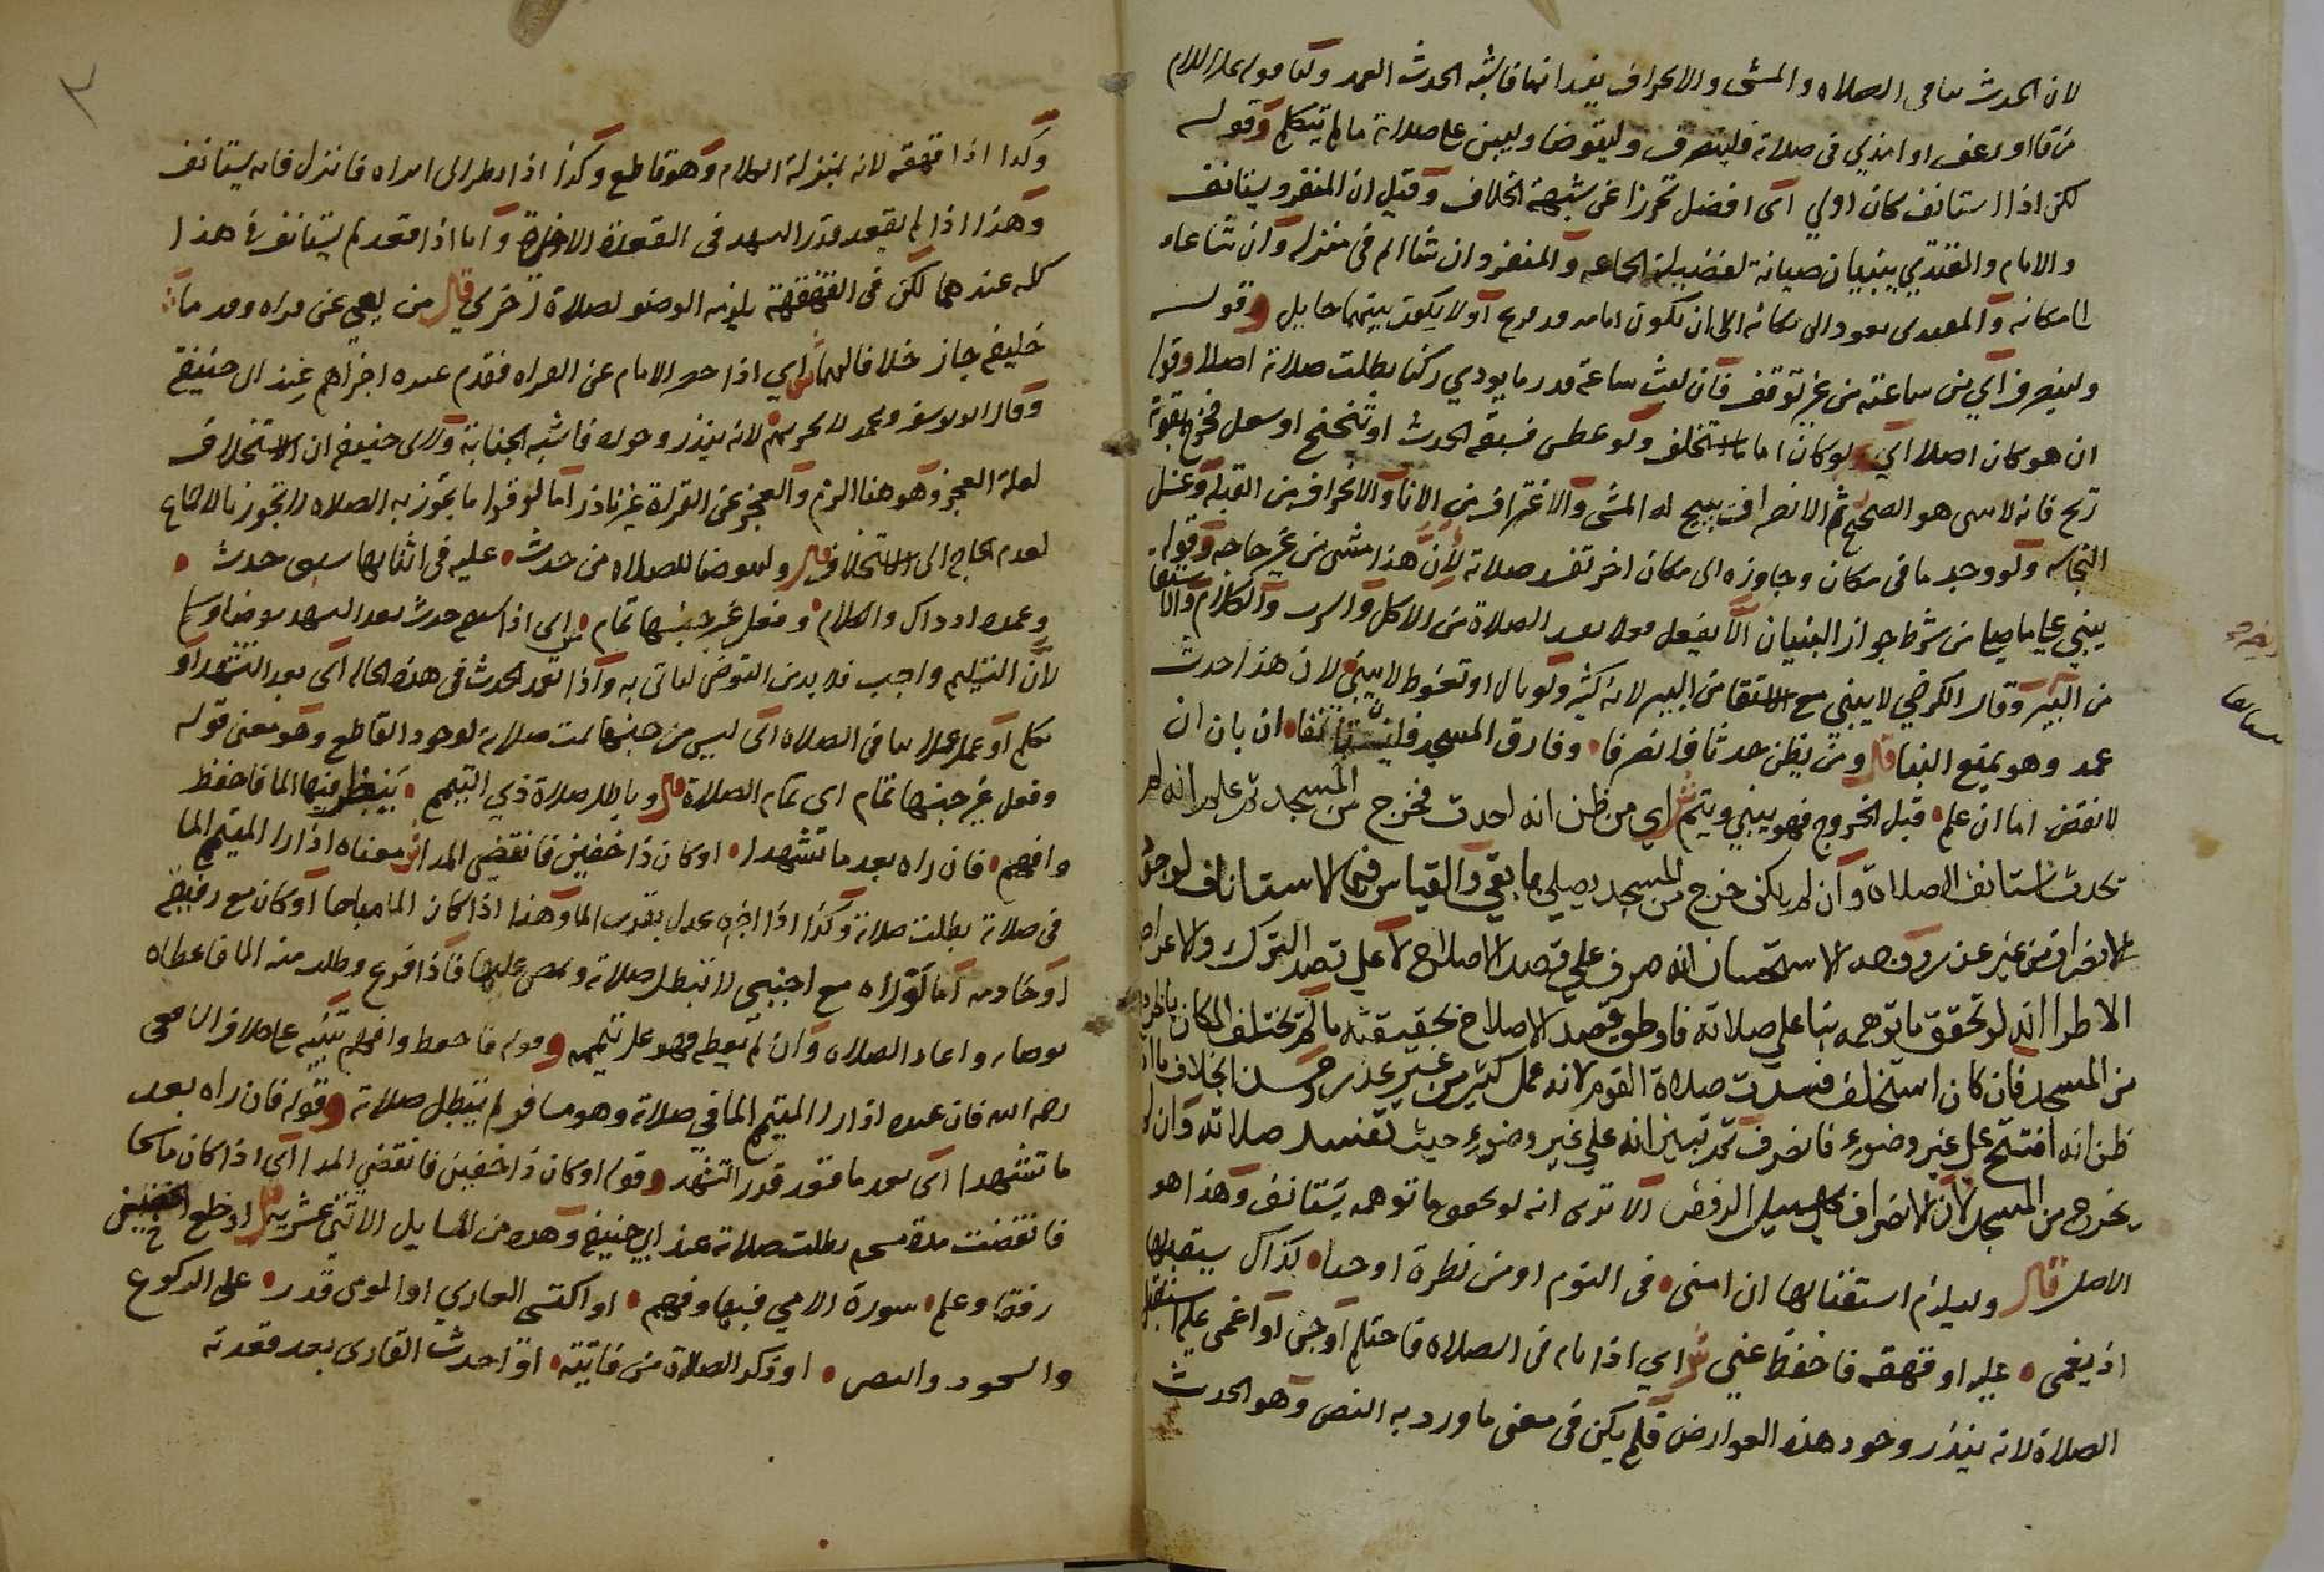 لان الحدث ينافى الصلاه والمشى والانحراف يفسدانها فاشبه الحدث العمد ولنا قوله عليه السلام
من قاا او رعف او امذي فى صلاته فلينصرف وليتوضا وليبن على صلاته ما لم يتكلم وقوله
لكن اذا استانف كان اولي اى افضل تحرزا عن شبهة الخلاف وقيل ان المنفرد يستانف
والامام والمقتدي يبنيان صيانة لفضيلة الجماعه والمنفرد ان شا اتم فى منزله وان شا عاد
الى مكانه والمقتدى يعود الى مكانه الا ان يكون امامه قد فرغ او لا يكون بينهما حايل وقوله
ولينصرف اي من ساعته من غير توقف فان لبث ساعة قدر ما يودي ركنا بطلت صلاته اصلا وقوله
ان هو كان اصلا اي لو كان اماما استخلف ولو عطس فسبقه الحدث او تنحنح او سعل فخرج بقوة
ريح فانه لا يبنى هو الصحيح ثم الانصراف يبيح له المشى والاغتراف من الانا والانحراف من القبله وغسل
النجاسه ولو وجد ما فى مكان وجاوزه الى مكان اخر تفسد صلاته لان هذا مشى من غير حاجه وقوله
يبني على ما صلى من شرط جواز البنيان الا يفعل فعلا يفسد الصلاة من الاكل والشرب والكلام والاستقا
من البير وقال الكرخي لا يبني مع الاستقا من البير لانه كثير ولو بال او تغوط لا يبني لان هذا حدث
عمد وهو يمنع البنا قال ومن يظن حدثا فانصرفا • وفارق المسجد فليستانفا • ان بان ان
لا نقض اما ان علم • قبل الخروج فهو يبني ويتم ش اي من ظن انه احدث فخرج من المسجد ثم علم انه لم
يحدث استانف الصلاة وان لم يكن خرج من المسجد يصلي ما بقي والقياس فيهما الاستيناف لوجود
الانصراف من غير عذر وجه الاستحسان انه صرف على قصد الاصلاح لا على قصد الترك والاعراض
الا ترا انه لو تحقق ما توهمه بنا على صلاته فالحق قصد الاصلاح بحقيقته ما لم يختلف المكان بالخروج
من المسجد فان كان استخلف فسدت صلاة القوم لانه عمل كثير من غير عذر وحسن الخلاف ما اذا
ظن انه افتتح على غير وضوء فانصرف ثم تبين انه علي غير وضوء حيث تفسد صلاته وان لم
يخرج من المسجد لان الانصراف على سبيل الرفض الا ترى انه لو تحقق ما توهمه يستانف وهذا هو
الاصل قال وليلزم استقبالها ان امنى • فى النوم او من نظرة او جنا • كذاك يستقبلها
اذ يغمى • عليه او قهقه فاحفظ عني ش اي اذا نام فى الصلاه فاحتلم او جن او اغمى عليه استقبل
الصلاة لانه يندر وجود هذه العوارض فلم يكن فى معنى ما ورد به النص وهو الحدث
٣
وكذا اذا قهقه لانه بمنزلة الكلام وهو قاطع وكذا اذا نظر الى امراه فانزل فانه يستانف
وهذا اذا لم يقعد قدر التشهد فى القعدة الاخيرة واما اذا قعد لم يستانف فى هذا
كله عندهما لكن فى القهقهة يلزمه الوضو لصلاة اخري قال من يعي عن قراه وقدما
خليفه جاز خلافا لهما ش اي اذا حصر الامام عن القراه فقدم غيره اجزاهم عند ابى حنيفة
وقال ابو يوسف ومحمد لا يجزيهم لانه يندر وجوده فاشبه الجنابة ولابى حنيفه ان الاستخلاف
لعلة العجز وهو هنا الزم والعجز عن القراة غير نادر اما لو قرا ما يجوز به الصلاه لا يجوز بالاجماع
لعدم الحاجه الى الاستخلاف قال وليتوضا للصلاه من حدث • عليه فى اثنايها سبق حدث •
وعمده اذ ذاك والكلام • وفعل غير جنسها تمام • ش اى اذا سبقه حدث بعد التشهد توضا وسلم
لان التسليم واجب فلا بد من التوضى لياتى به واذا تعمد الحدث فى هذه الحاله اى بعد التشهد او
تكلم او عمل عملا ينافى الصلاه اى ليس من جنسها تمت صلاته لوجود القاطع وهو معنى قوله
وفعل غير جنسها تمام اى تمام الصلاة قال وباطل صلاة ذي التيمم • ينظر فيها الما فاحفظ
وافهم • فان راه بعد ما تشهدا • او كان ذا خفين فانقضى المدا ش معناه اذا راا المتيمم الما
فى صلاته بطلت صلاته وكذا اذا اخبره عدل بقرب الما وهذا اذا كان الما مباحا او كان مع رفيقه
او خادمه اما لو راه مع اجنبي لا تبطل صلاته ويمضى عليها فاذا فرغ وطلب منه الما فاعطاه
توضا واعاد الصلاه وان لم يعطه فهو على تيممه وقوله فاحفظ وافهم تنبيه على خلاف الشافعى
رحمه الله فان عنده اذا راا المتيمم الما فى صلاته وهو مسافر لم تبطل صلاته وقوله فان راه بعد
ما تشهدا اى بعد ما قعد قدر التشهد وقوله او كان ذا خفين فانقضى المدا اى اذا كان ماسحا
فانقضت مدة مسحه بطلت صلاته عند ابي حنيفه وهذه من المسايل الاثنى عشريه قال او خلع الخفين
رفقا وعلم • سورة الامي فيها وفهم • او اكتسى العاري او المومى قدر • على الركوع
والسجود والبصر • او ذكر الصلاة من فايته • او احدث القارى بعد قعدته